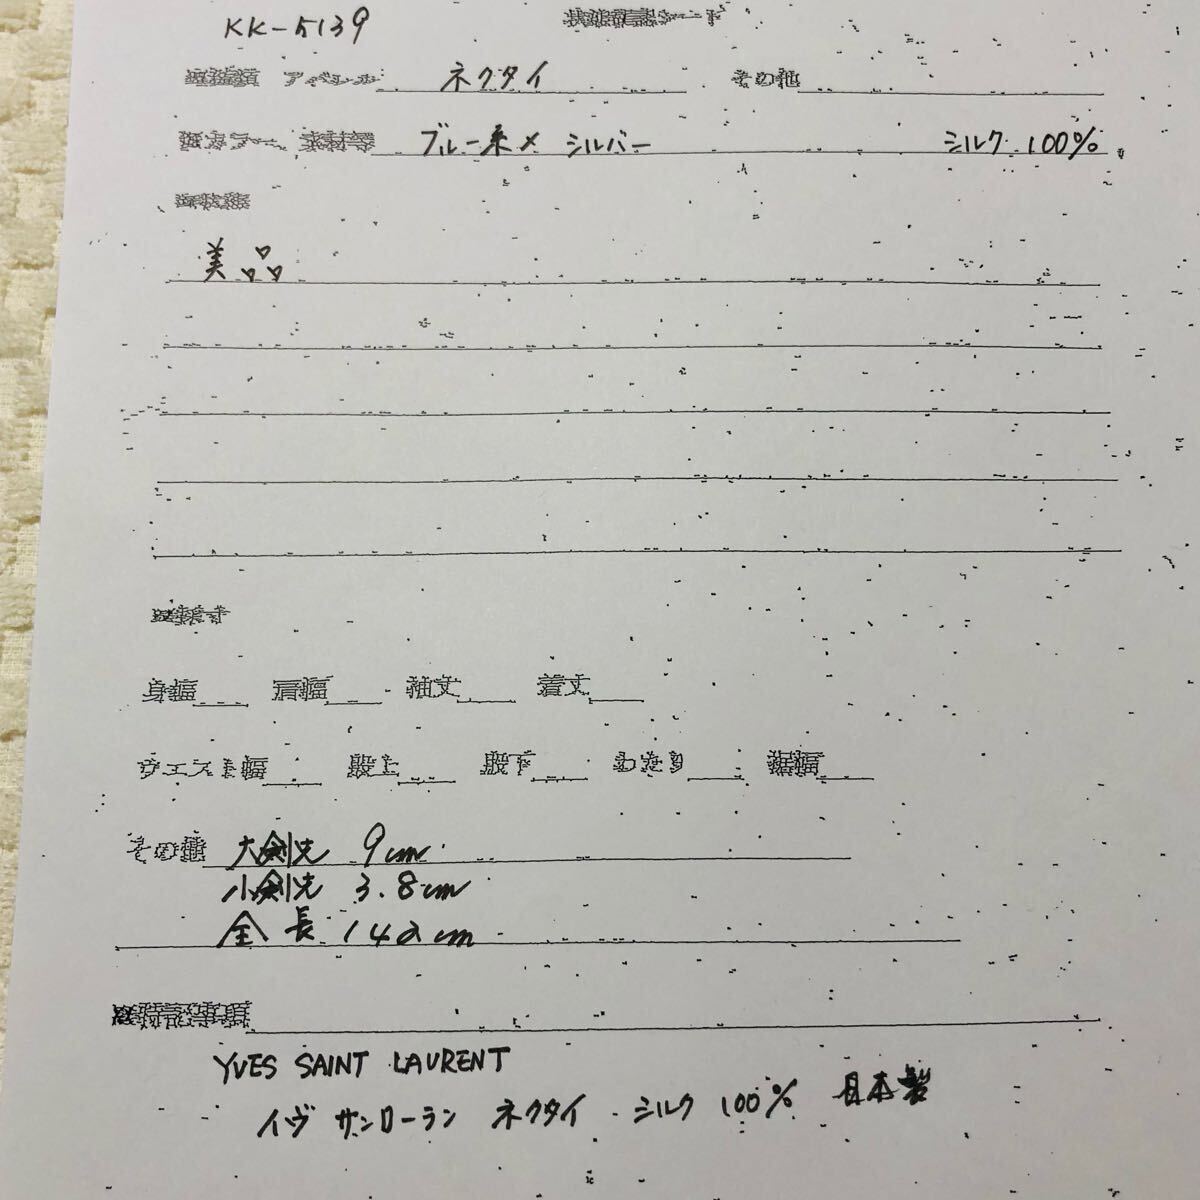 KK-5139
アパレル ネクタイ その他
カラー、素材等 ブルー系× シルバー シルク 100%
美品
身幅 肩幅 袖丈 着丈
ウエスト幅 股上 股下 わたり 裾幅
その他 大剣先 9cm
小剣先 3.8cm
全長 142cm
特記事項
YVES SAINT LAURENT
イヴ サンローラン ネクタイ シルク 100% 日本製